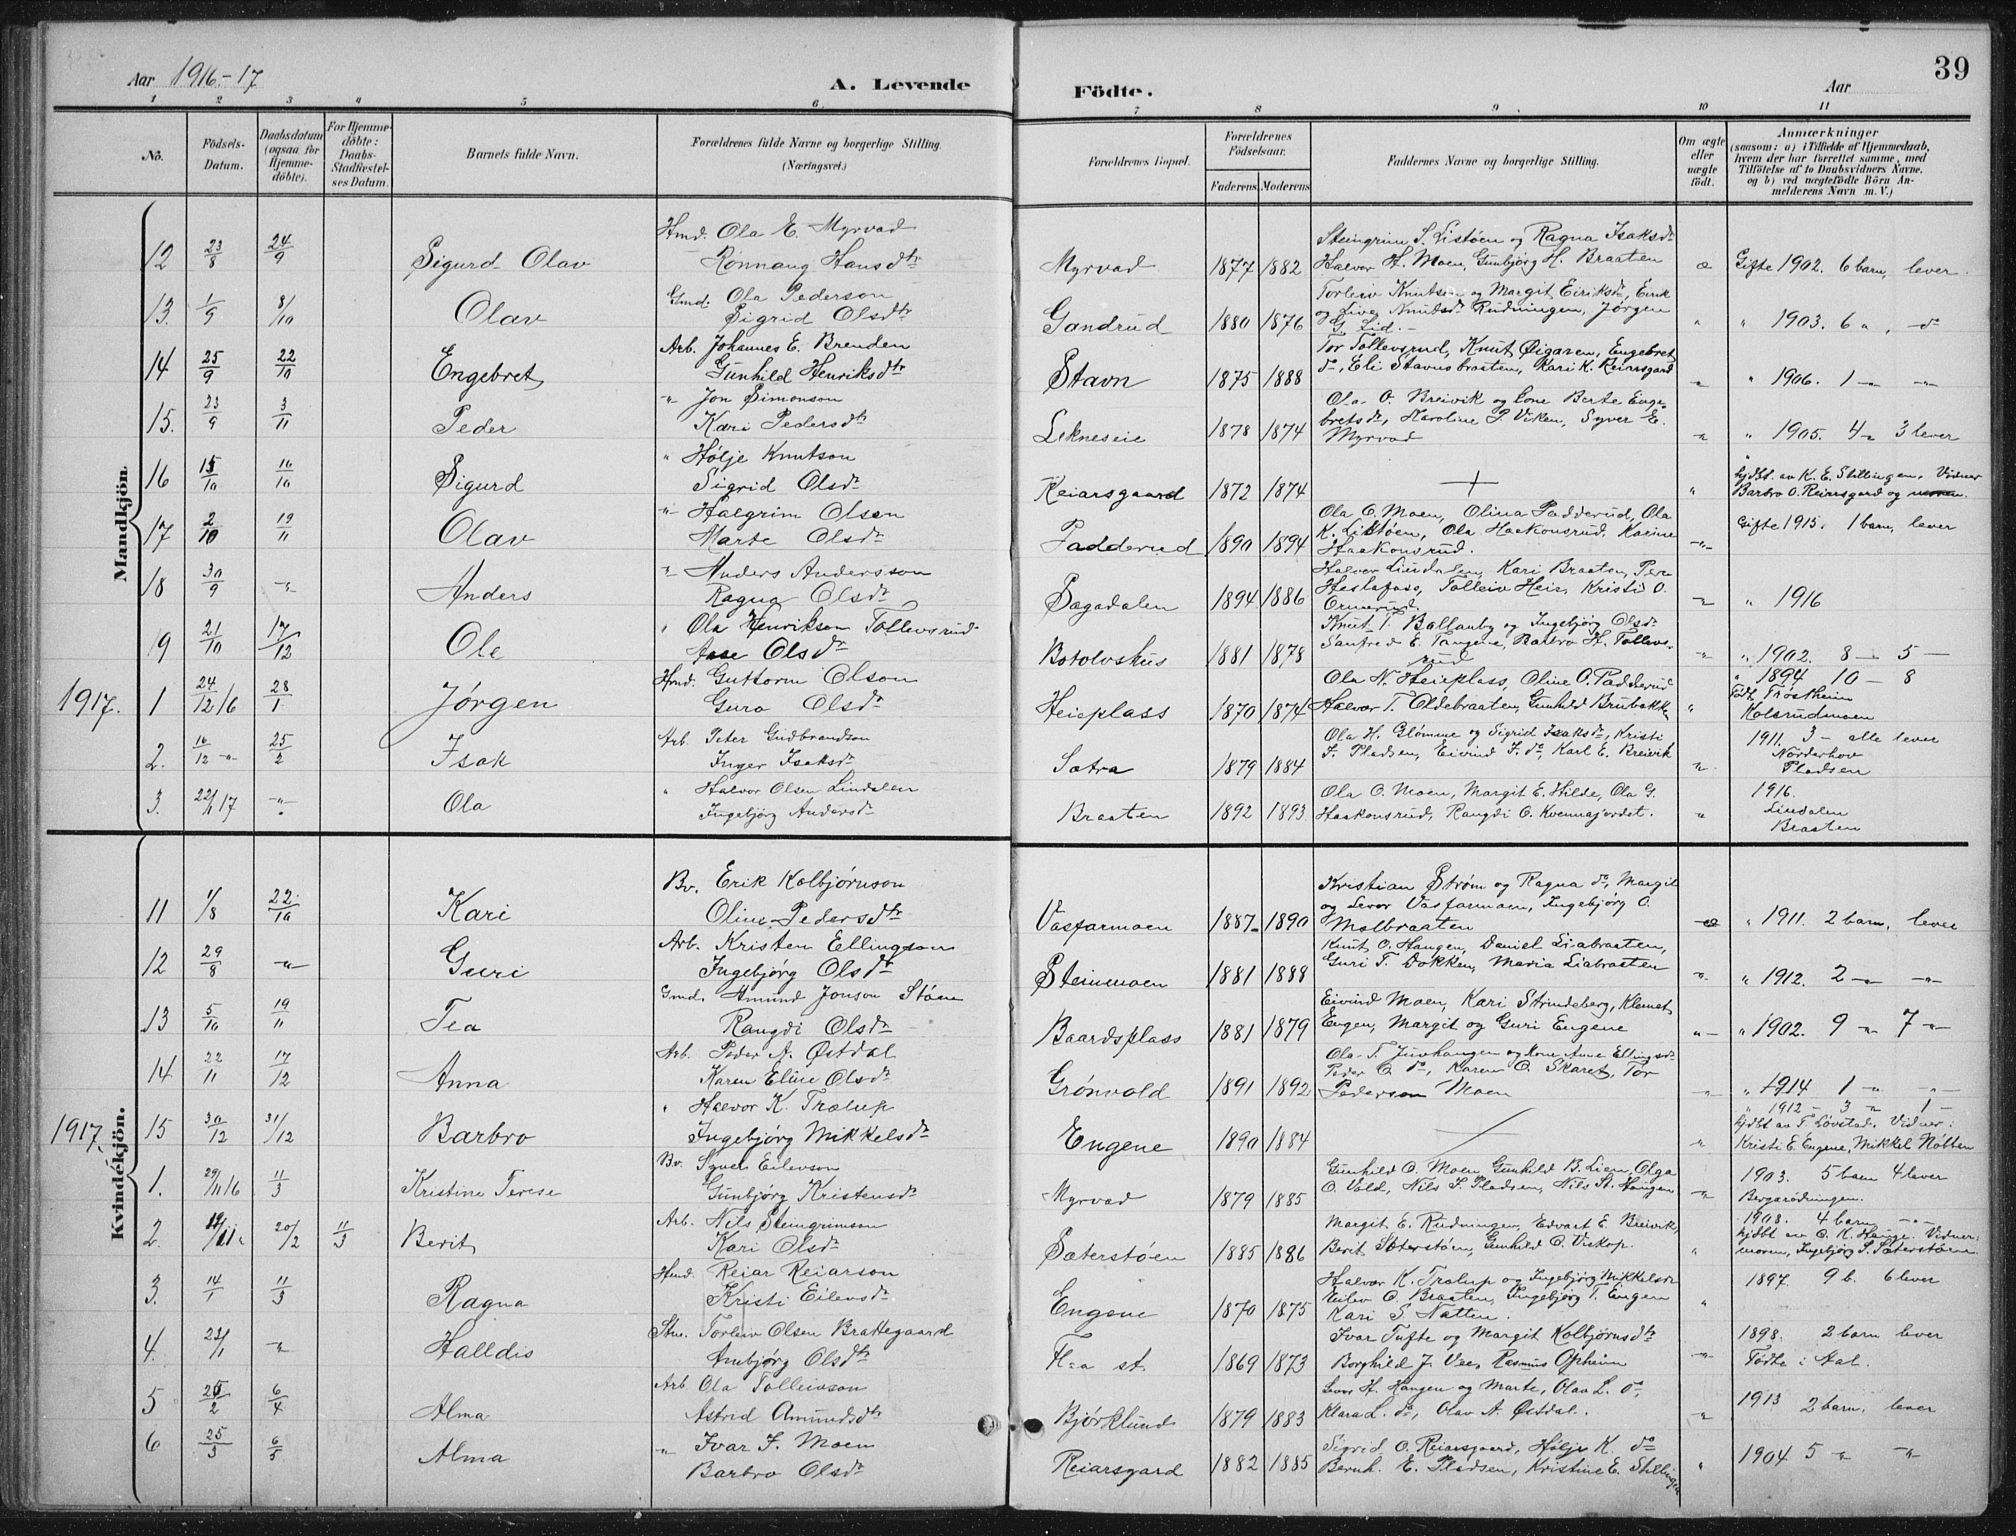 39
Aar 1916-17
A. Levende
Födte.
Aar
1 2 3 4 5 6 7 8 9 10 11
No.
Födsels-Datum.
Daabsdatum (ogsaa for Hjemme-döbte).
For Hjemme-döbte: Daabs-Stadfæstel-ses Datum.
Barnets fulde Navn.
Forældrenes fulde Navne og borgerlige Stilling. (Næringsvei.)
Forældrenes Bopæl.
Forældrenes Födselsaar.
Faderens. Moderens.
Faddernes Navne og borgerlige Stilling.
Om ægte eller uægte födt.
Anmærkninger (saasom: a) i Tilfælde af Hjemmedaab, hvem der har forrettet samme, med Tilföielse af to Daabsvidners Navne, og b) ved uægtefödte Börn An-melderens Navn m. V.)
Mandkjön.
12 23/8 24/9 Sigurd Olav Hmd. Ola E. Myrvad
Ronnaug Hansdtr Myrvad 1877 1882 Steingrim S. Listøen og Ragna Isaksdtr
Halvor H. Moen, Gunbjørg H. Braaten æ Gifte 1902. 6 barn, lever.
13. 1/9 8/10 Olav Gmd. Ola Pederson
Sigrid Olsdtr Gandrud 1880 1876 Torleiv Knutsen og Margit Eiriksdtr, Eirik
og Live Knudsdtr Rudningen, Jørgen
G. Lid. " 1903. 6 " , do
14 25/9 22/10 Engebret Arb. Johannes E. Brenden
Gunhild Henriksdtr Stavn 1875 1888 Tor Tollevsrud, Knut Øigaren, Engebret
do, Eli Stavnsbraaten, Kari K. Reiarsgaard " 1906. 1 " "
15. 23/9 3/11 Peder " Jon Simonson
Kari Pedersdtr Lekneseie 1878 1874 Ola O. Breivik og kone Berte Enge-
bretsdtr, Karoline P. Viken, Syver E.
Myrvad " 1905. 4 " 3 lever
16 15/10 16/10 Sigurd " Hølje Knutson
Sigrid Olsdtr Reiarsgaard 1872 1874 " hjdbt. av K. E. Stillingen. Vidner
Barbro O. Reiarsgard og moren.
17 2/10 19/11 Olav " Halgrim Olsen
Marte Olsdtr Padderud 1890 1894 Ola O. Moen, Olina Padderud, Ola
K. Listøen, Ola Haakonsrud, Karine
Haakonsrud. " Gifte 1915. 1 barn, lever
18 30/9 " Anders " Anders Andersson
Ragna Olsdtr Sagadalen 1894 1886 Halvor Lindalen, Kari Braaten, Per
Tolleiv Hein, Kristi O. " 1916
19 21/10 17/12 Ole " Ola Henriksen Tollevsrud
Aase Olsdtr Botolvshus 1881 1878 Knut T. Ballanby og Ingebjørg Olsdtr
Sanfred E. Trøgene, Barbro H. Tollevs-
rud " 1902. 8 — 5 —
1917. 1 24/12 16 28/1 Jørgen Hmd. Guttorm Olson
Guro Olsdtr Heieplass 1870 1874 Ola N. Heieplass, Oline O. Padderud
Halvor T. Oldebraaten, Gunhild Brubakken " " 1894 10 — 8
Født Trøstheim
Kolsrudmoen
2. 16/12 " 25/2 Isak Arb. Peter Gudbrandson
Inger Isaksdtr Sætra 1879 1884 Ola H. Glømme og Sigrid Isaksdtr, Kristi
I. Pladsen, Eivind I. do, Karl E. Breivik " 1911. 3 — alle lever
Norderhov
Pladsen
3. 22/1 17 " Ola " Halvor Olsen Lindalen
Ingebjørg Andersdtr Braaten 1892 1893 Ola O. Moen, Margit E. Hilde, Ola G.
Haakonsrud, Rangdi O. Kvennajordet. " 1916.
Lindalen
Braaten
Kvindekjön.
11 1/8 22/10 Kari Bv. Erik Kolbjørnson
Oline Pedersdtr Vasfarmoen 1887 1890 Kristian Strøm og Ragna do, Margit
og Levor Vasfarmoen, Ingebjørg O.
Molbraaten æ " 1911. 2 barn, lever
12 29/8 " Guri Arb. Kristen Ellingson
Ingebjørg Olsdtr Steinmoen 1881 1888 Knut O. Haugen, Daniel Liabraaten,
Guri T. Dokken, Maria Liabraaten " " 1912. 2 " "
13 5/10 19/11 Tea Gmd. Amund Jonson Støen
Rangdi Olsdtr Baardsplass 1881 1879 Eivind Moen, Kari Strindeberg, Klemet
Engen, Margit og Guri Engene " " 1902. 9 " 7 "
14 22/11 17/12 Anna Arb. Peder A. Østdal
Karen Eline Olsdtr Grønvold 1891 1892 Ola T. Juvhaugen og kone Anne Ellingsdtr
Peder O. do, Karen O. Skaret, Tor
Pedersen Moen " " 1914 1 " "
1917. 15 30/12 31/12 Barbro " Halvor K. Trølup
Ingebjørg Mikkelsdtr Engene 1890 1884 " " 1912 — 3 " 1 —
hjdbt av T. Løvstad. Vidner:
Kristi E. Engene, Mikkel Nøtten
1. 29/11 16 11/3 Kristine Terese Bv. Syver Eilevson
Gunbjørg Kristensdtr Myrvad 1879 1885 Gunhild O. Moen, Gunhild B. Lien, Olga
O. Vold, Nils I. Pladsen, Nils K. Haugen " 1903. 5 barn 4 lever
2. 19/11 " 20/2 11/3 Berit Arb. Nils Steingrimson
Kari Olsdtr Sæterstøen 1885 1886 Margit E. Rudningen, Edvart E. Breivik,
Berit Sæterstøen, Gunhild O. Viskop. " 1908. 4 barn "
hjdbt av O. K. Hauge. Vidner:
moren, Ingebjørg S. Sæterstøen
3. 14/1 11/3 Ragna Hmd. Reiar Reiarson
Kristi Eilevsdtr Engene 1870 1875 Halvor K. Trølup og Ingebjørg Mikkelsdtr
Eilev O. Braaten, Ingebjørg T. Engen
Kari S. Natten. " 1897. 9 b. 6 lever
4. 23/1 " Halldis Stm. Torleiv Olsen Brattegaard
Ambjørg Olsdtr Flaa st. 1869 1873 Ivar Tufte og Margit Kolbjørnsdtr
Borghild J. Vee, Rasmus Opheim " 1898. 2 barn lever
Fødte i Aal.
5 25/2 6/4 Alma Arb Ola Tolleivson
Astrid Amundsdtr Bjørklund 1879 1883 Levor H. Haugen og Marte, Olav L. do,
Klara L. do, Olav A. Østdal. " 1913 2 barn, lever
6 25/3 6/5 Alma " Ivar I. Moen
Barbro Olsdtr Reiarsgard 1882 1885 Sigrid O. Reiarsgaard, Hølje K. do
Bernh. E. Pladsen, Kristine E. Stillingen " 1904 5 " "